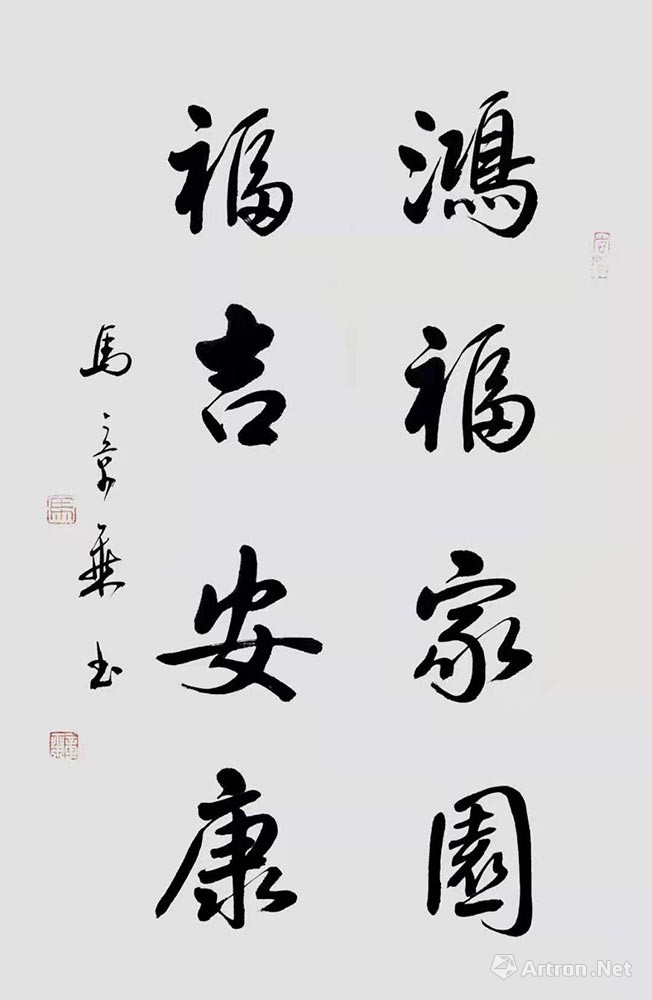 鴻福家園
福吉安康
馬章乘书
Artron.Net